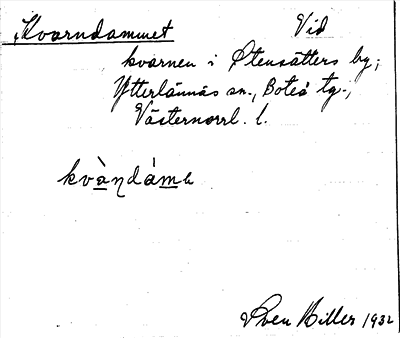 Kvarndammet Vid
kvarnen i Stensätters by,
Ytterlännäs sn., Boteå tg.,
Västernorrl. l.
kvàndám
Sven Hiller 1932